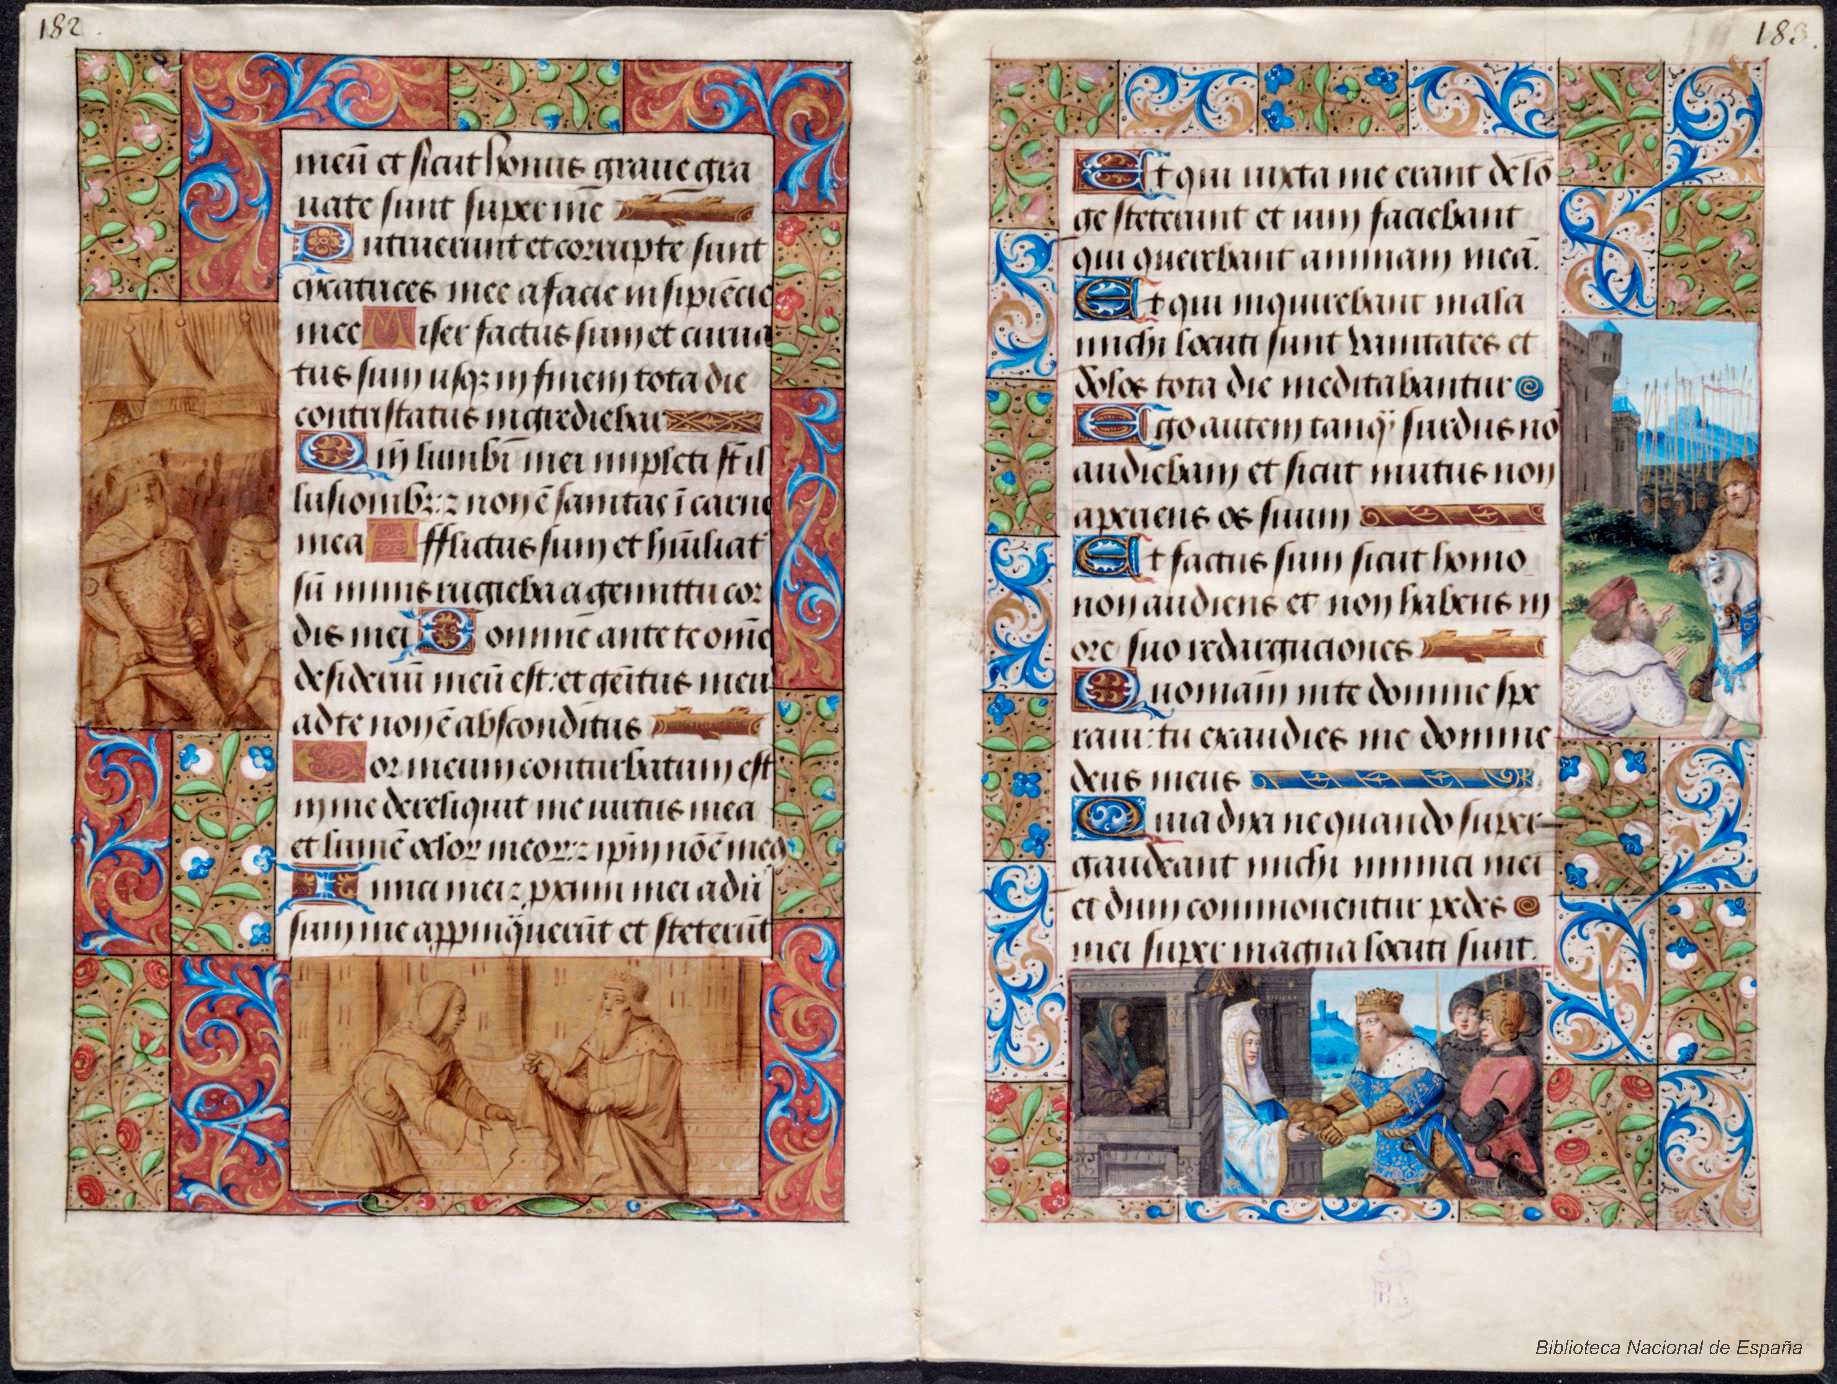 182.
meū et sicut honus graue gra
uate sunt super me
Putruerunt et corrupte sunt
cycatrices mee a facie insipiēcie
mee Miser factus sum et curua
tus sum usqȝ in finem tota die
contristatus ingrediebar
Qm̄ lumbi mei impleti st̄ il
lusionibȝ: ⁊ non ē sanitas ī carne
mea Afflictus sum et hūiliat᾽
sū nimis rugieba a gemittu cor
dis mei Domine ante te om̄e
desideriū meū est: et gēitus meu
ad te non ē absconditus
Cor meum conturbatum est
in me dereliquit me uirtus mea
et lumē oclor meor: ⁊ ipm̄ nō ē mecū
Amici mei ⁊ pximi mei aduer
sum me appinq̄uerūt et steterūt
183.
Et qui iuxta me erant de lō
ge steterunt et uim faciebant
qui querebant animam meā.
Et qui inquirebant mala
michi locuti sunt vanitates et
dolos tota die meditabantur
Ego autem tanq̄ surdus nō
audiebam et sicut mutus non
aperiens os suum
Et factus sum sicut homo
non audiens et non habens in
ore suo redarguciones
Quoniam in te domine spe
raui: tu exaudies me domine
deus meus
Quia dixi ne quando super
gaudeant michi inimici mei
et dum commouentur pedes
mei super magna locuti sunt.
Biblioteca Nacional de España